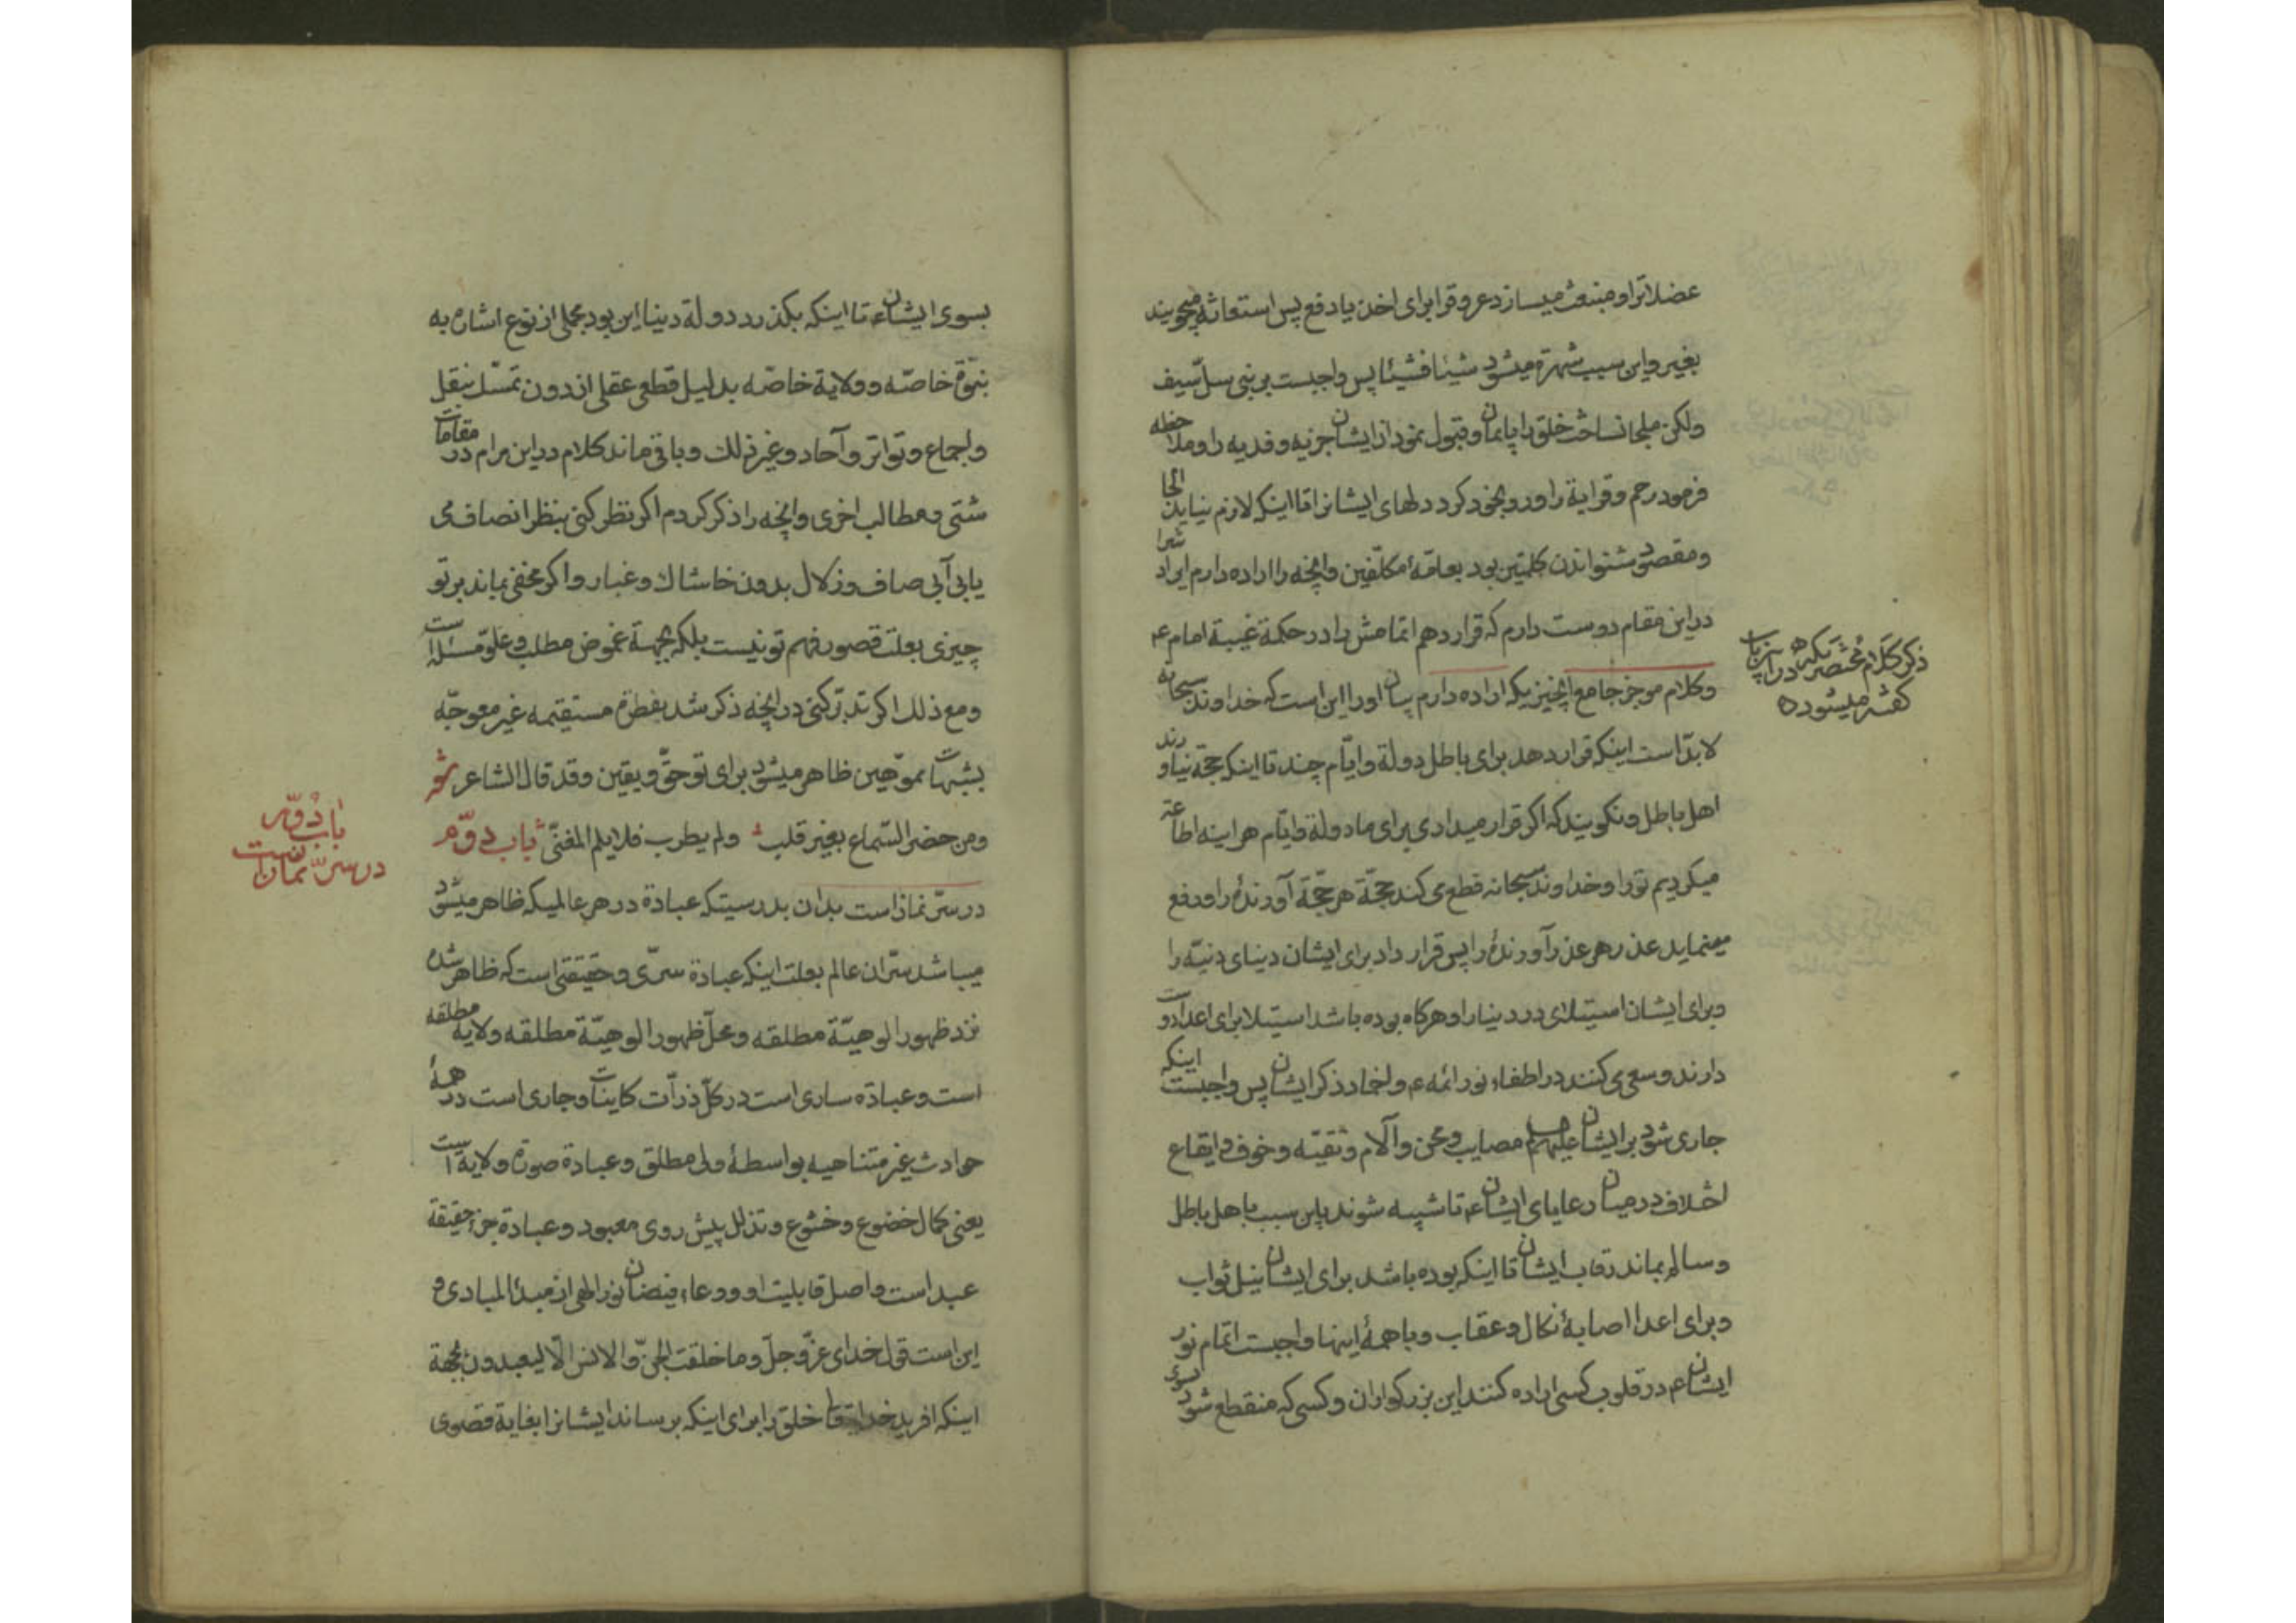 عضلاترا و منبعث میسازد عروقرا برای اخذ یا دفع پس استعانة میجویند
بغیر و این سبب شهرة میشود شیئا فشیئا پس واجبست بر نبی سلّ سیف
ولکن ملجا نساخت خلق را بایمان و قبول نمود از ایشان جزیه و فدیه را و ملاحظه
فرمود رحم و قرابة را و رو بخود کرد دلهای ایشانرا تا اینکه لازم نیاید الجا
و مقصود شنواندن کلمتین بود بعامّهٔ مکلّفین و آنچه را اراده دارم ایراد شرا
در این مقام دوست دارم که قرار دهم اتمامش را در حکمة غیبة امام ع
و کلام موجز جامع آنچنیزیکه اراده دارم بیان او را این است که خداوند سبحانه
لابدّ است اینکه قرار دهد برای باطل دولة و ایّام چند تا اینکه حجّة نیاورند
اهل باطل و نکویند که اکر قرار میدادی برای ما دولة و ایّام هر اینه اطاعة
میکردیم تو را و خداوند سبحانه قطع می کند حجّة هر حجّة آورندهٔ را و رفع
مینماید عذر هر عذر آورندهٔ را پس قرار داد برای ایشان دنیای دنیّه را
و برای ایشان استیلای در دنیا را و هرکاه بوده باشد استیلا برای اعداوت
دارند و سعی می کنند در اطفاء نور ائمه ع و اخماد ذکر ایشان پس واجبست اینکه
جاری شود بر ایشان علیهم مصایب و محن و آلام و تقیّه و خوف و ایقاع
اختلاف در میان رعایای ایشان ع تا شبیه شوند باین سبب باهل باطل
و سالم بماند رقاب ایشان تا اینکه بوده باشد برای ایشان نیل ثواب
و برای اعدا اصابهٔ نکال و عقاب و با همهٔ اینها واجبست اتمام نور
ایشان ع در قلوب کسی اراده کنند این بزرکواران و کسی که منقطع شود بسوی
ذکر کلام مختصریکه در آن باب
کفته میشود ه
بسوی ایشان ع تا اینکه بکذرد دولة دنیا این بود مجملی از نوع اشاره به
نبوّة خاصّه و ولایة خاصّه بدلیل قطعی عقلی از دون تمسّک بنقل
و اجماع و تواتر و آحاد و غیر ذلک و باقی ماند کلام در این مرام در مقامات
شتّی و مطالب اخری و آنچه را ذکر کردم اکر نظر کنی بنظر انصاف می
یابی آبی صاف و زلال بدون خاشاک و غبار و اکر مخفی بماند بر تو
چیزی بعلت قصور فهم تو نیست بلکه بجهة غموض مطلب و علوّ مسئله است
و مع ذلک اکر تدبّر کنی در آنچه ذکر شد بفطرة مستقیمه غیر معوجّه
بشبهات مموّهین ظاهر میشود برای تو حقّ و یقین و قد قال الشاعر شعر
و من حضر السّماع بغیر قلب و لم یطرب فلا یلم المغنّی باب دوّم
در سرّ نماز است بدان بدرستیکه عبادة در هر عالمیکه ظاهر میشود
میباشد سرّ ان عالم بعلت اینکه عبادة سرّی و حقیقتی است که ظاهر شده
نزد ظهور الوهیّة مطلقه و محلّ ظهور الوهیّة مطلقه ولایة مطلقه
است و عبادة ساری است در کلّ ذرّات کاینات و جاری است در همهٔ
حوادث غیر متناهیه بواسطهٔ ولی مطلق و عبادة صورة ولایة است
یعنی کمال خضوع و خشوع و تذلل پیش روی معبود و عبادة جزء حقیقة
عبد است و اصل قابلیت او و وعاء فیضان نور الهی از مبدأ المبادی و
این است قول خدای عزّ و جلّ و ما خلقت الجنّ و الانس الّا لیعبدون بجهة
اینکه افرید خدا تعا خلق را برای اینکه برساند ایشانرا بغایة قصوی
باب دوّم
در سرّ نماز است